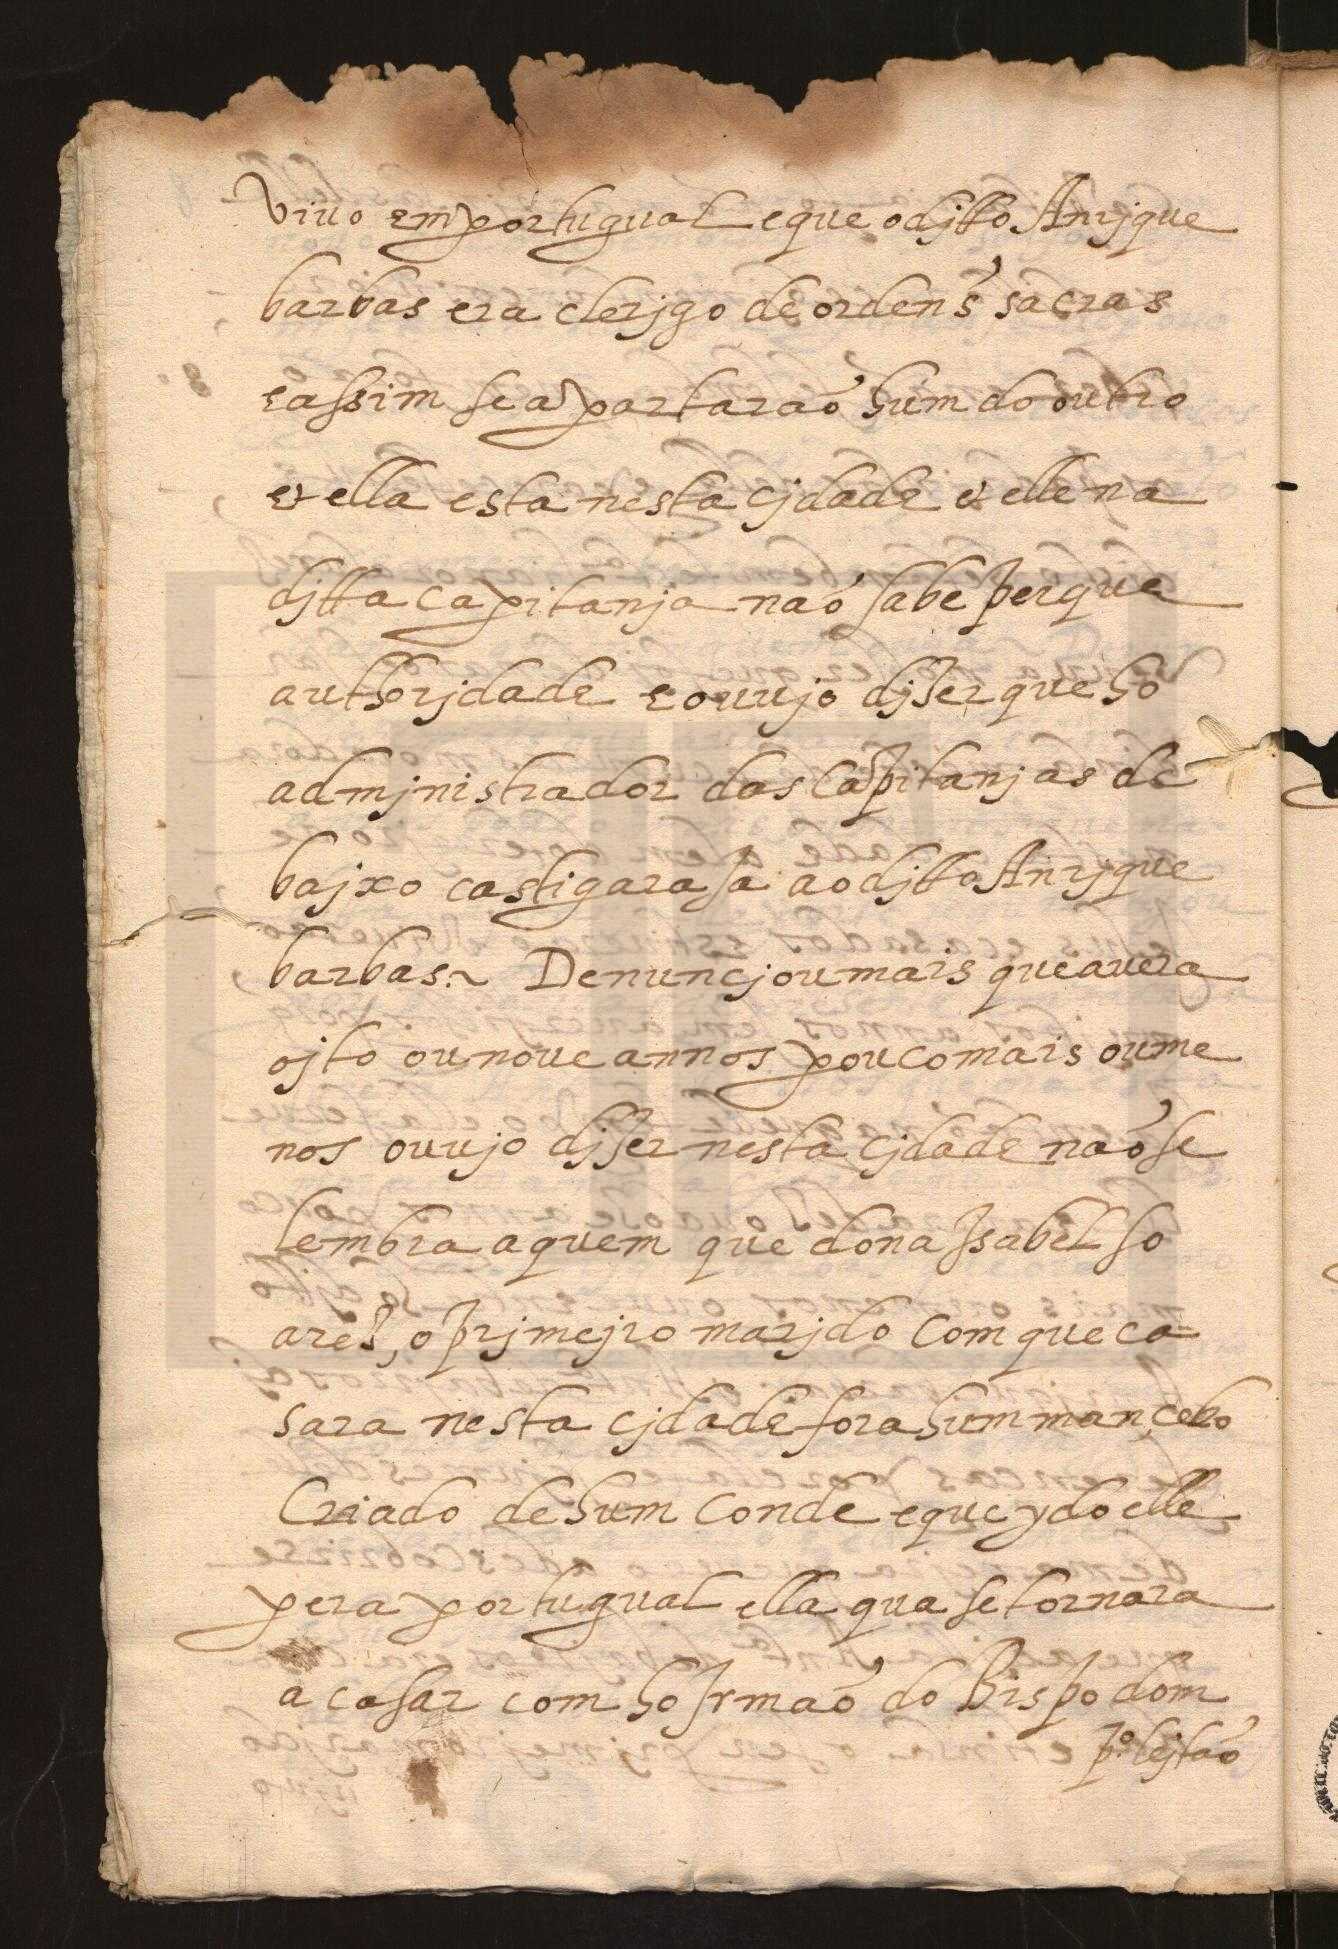 viuo em portugual e que o djtto Anrjque
barbas era clerjgo de ordens sacras
e assim se apartaraõ hum do outro
e ella esta nesta cjdade e elle na
djtta capitanja naõ sabe per que
authorjdade e ouujo djzer que ho
admjnistrador das Capitanjas de
bajxo castigara ja ao djtto Anrjque
barbas.~ Denuncjou mais que auera
ojto ou noue annos pouco mais ou me
nos ouujo djzer nesta cjdade naõ se
lembra a quem que dona Isabel so
ares, o prjmejro marjdo com que ca=
sara nesta cjdade fora hum mancebo
Criado de hum conde e que ydo elle
pera portugual ella qua se tornara
a casar com ho Irmaõ do Bispo dom
pº lejtaõ